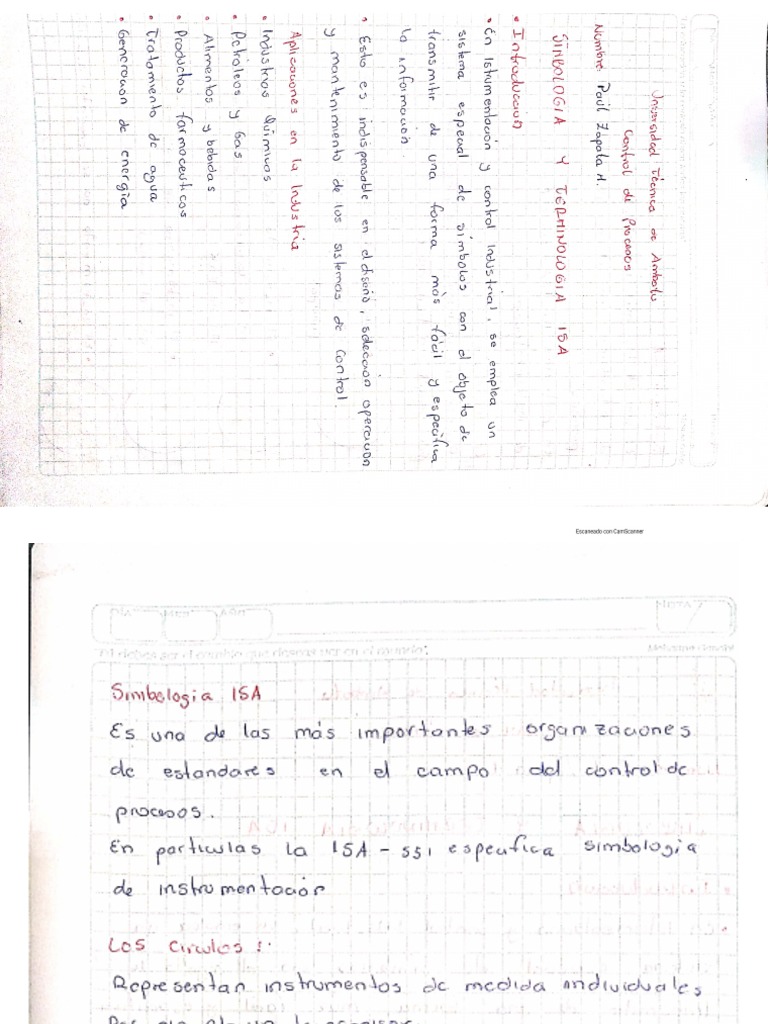 Universidad Técnica de Ambato
Control de Procesos
Nombre: Paúl Zapata A.
SIMBOLOGIA Y TERMINOLOGIA ISA
• Introducción
• En Istumentación y control Industrial, se emplea un
sistema especial de símbolos con el objeto de
transmitir de una forma más fácil y específica
la información.
• Esto es indispensable en el diseño, selección operación
y mantenimiento de los sistemas de control.
Aplicaciones en la Industria
• Industrias Químicas
• Petróleos y Gas
• Alimentos y bebidas
• Productos farmaceuticos
• Tratamiento de agua
• Generación de energía
Escaneado con CamScanner
Simbologia ISA
Es una de las más importantes organizaciones
de estandares en el campo del control de
procesos.
En particulas la ISA - SS1 especifica simbología
de instrumentación
Los Circulos:
Representan instrumentos de medida individuales